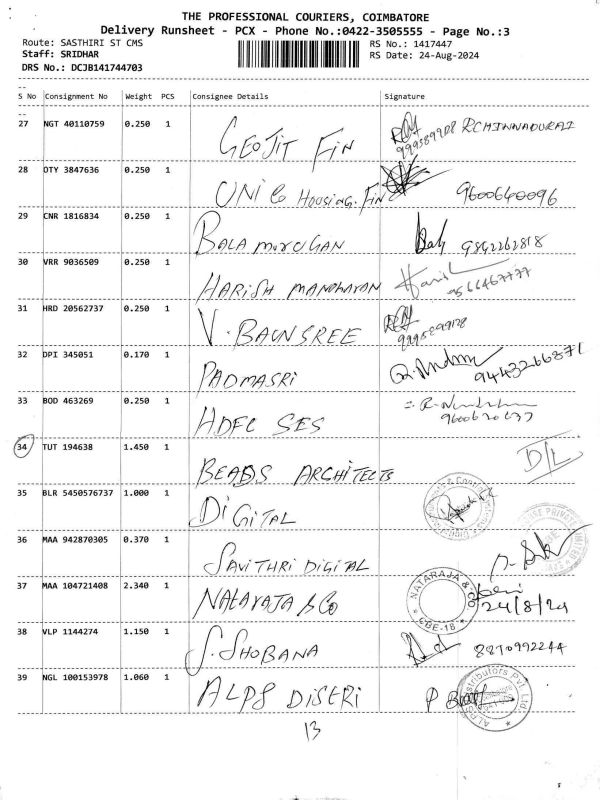 THE PROFESSIONAL COURIERS, COIMBATORE
Delivery Runsheet - PCX - Phone No.:0422-3505555 - Page No.:3
Route: SASTHIRI ST CMS RS No.: 1417447
Staff: SRIDHAR RS Date: 24-Aug-2024
DRS No.: DCJB141744703
S No Consignment No Weight PCS Consignee Details Signature
27 NGT 40110759 0.250 1 GEOJIT FIN RCHINNADURAI
28 OTY 3847636 0.250 1 UNI Co HOUSING.FIN 9600640096
29 CNR 1816834 0.250 1 BALA MURUGAN 9842262818
30 VRR 9036509 0.250 1 HARISH MANOHARAN 9566467777
31 HRD 20562737 0.250 1 V.
32 DPI 345051 0.170 1 PADMASRI 9443266871
33 BOD 463269 0.250 1 HDFC SES 9600620637
34 TUT 194638 1.450 1 BEADS ARCHITECTS D/L
35 BLR 5450576737 1.000 1 DIGITAL
36 MAA 942870305 0.370 1 SAVITHRI DIGITAL
37 MAA 104721408 2.340 1 NATARAJA & Co NATARAJA & CO CBE-18 24/8/24
38 VLP 1144274 1.150 1 S. SHOBANA 8810992244
39 NGL 100153978 1.060 1 ALPS DISTRI P ALPS Distributors Pvt. Ltd.
13